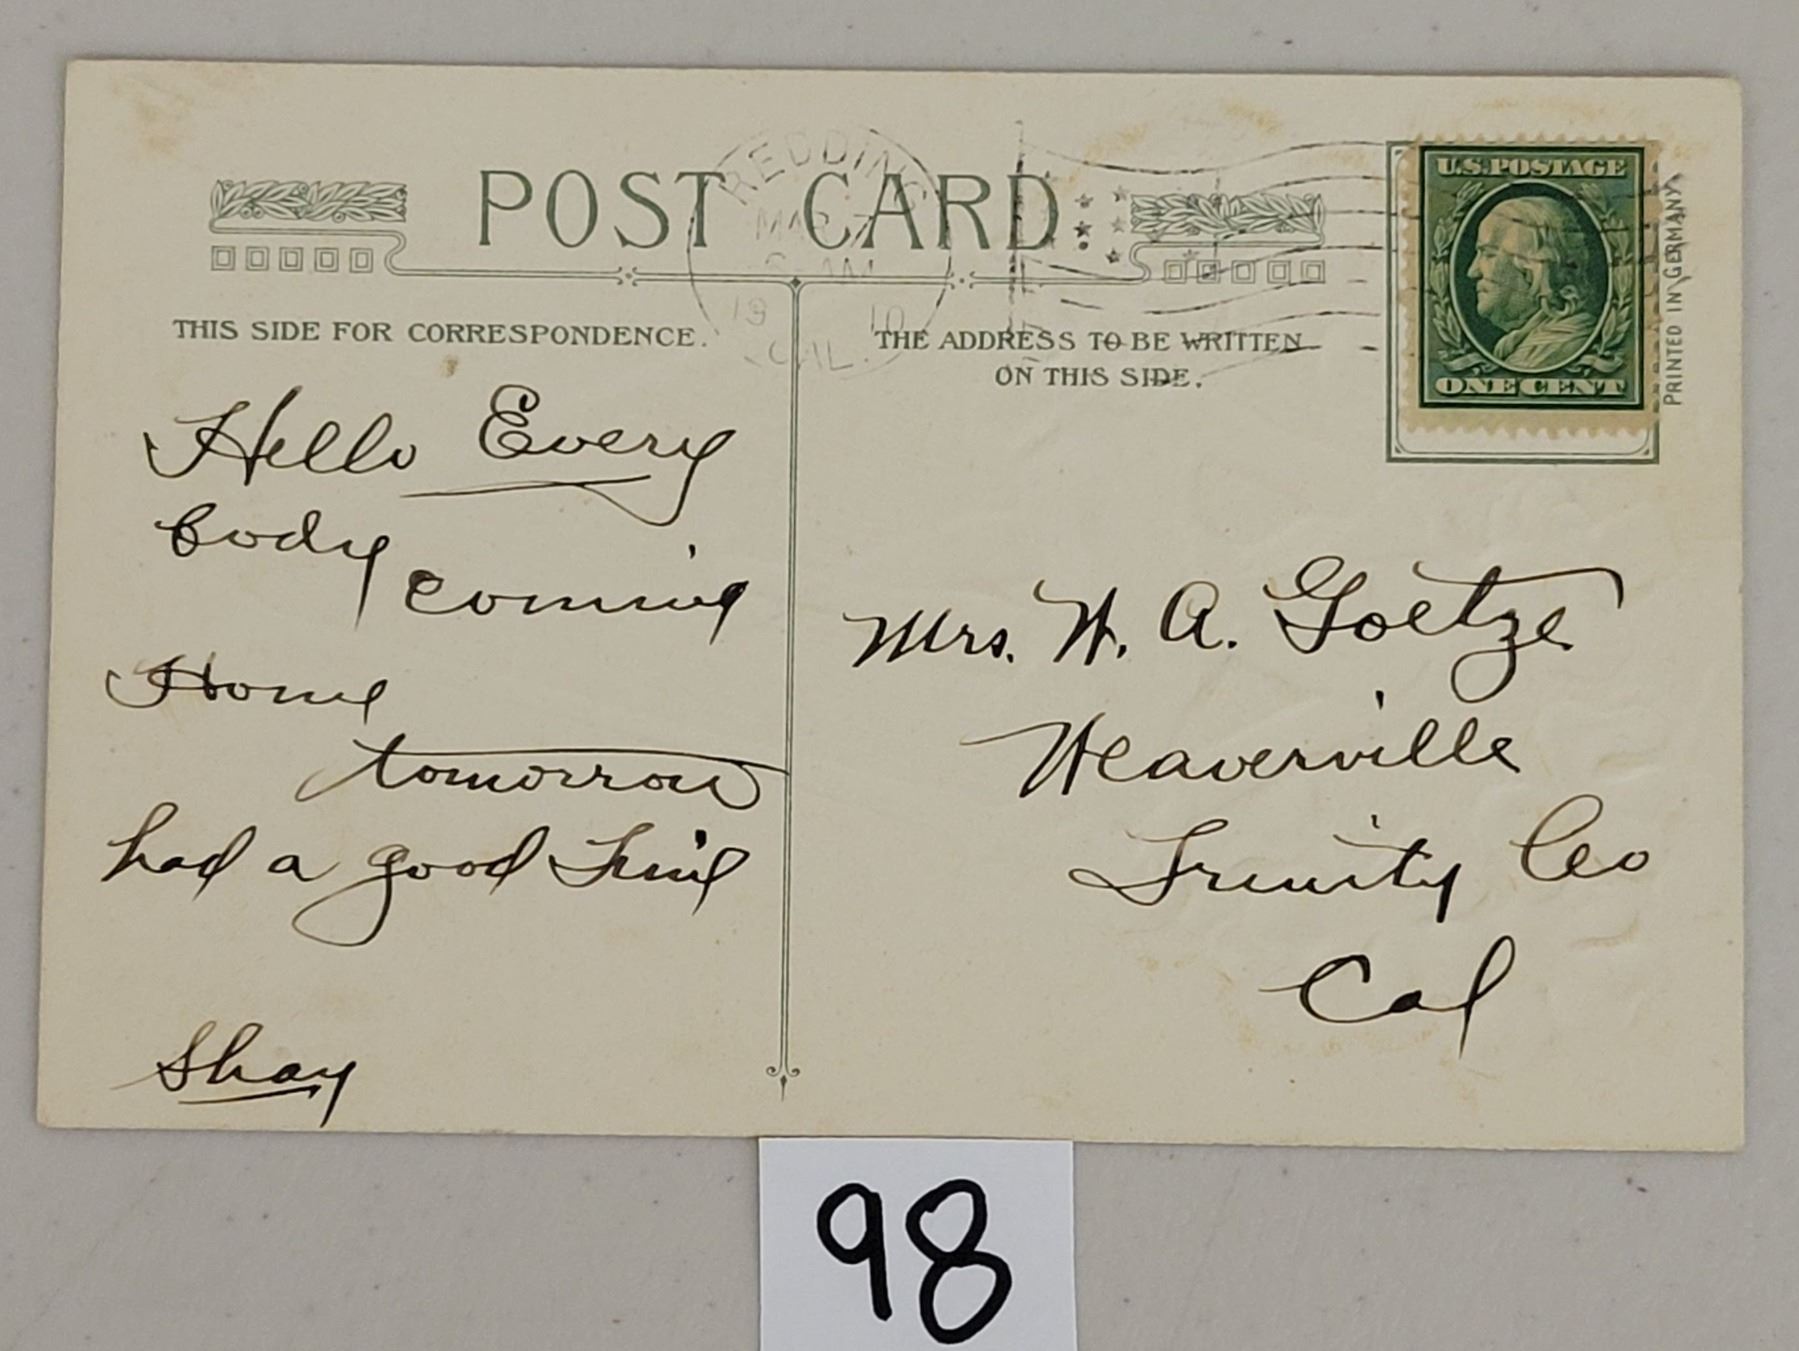 POST CARD
REDDING
MAR
AM
1910
CAL.
U.S. POSTAGE
ONE CENT
PRINTED IN GERMANY
THIS SIDE FOR CORRESPONDENCE.
THE ADDRESS TO BE WRITTEN
ON THIS SIDE.
Hello Every
body
coming
Home
tomorrow
had a good Time
Shay
Mrs. W. A. Goetze
Weaverville
Trinity Co
Cal
98